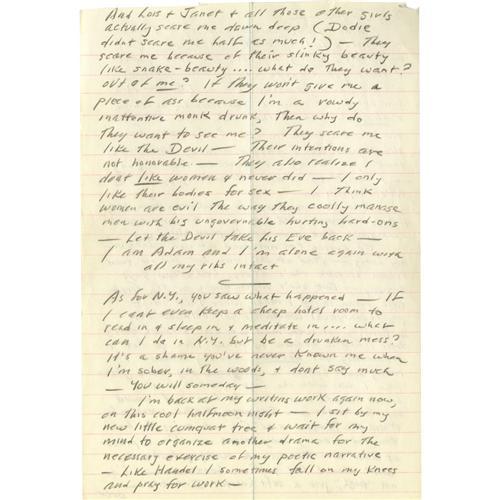 And Lois + Janet + all those other girls
actually scare me down deep (Dodie
didnt scare me half as much!) — They
scare me because of their slinky beauty
like snake-beauty .... what do They want?
out of me? If They won't give me a
piece of ass because I'm a rowdy
inattentive monk drunk, Then why do
They want to see me? They scare me
like The Devil — Their intentions are
not honorable — They also realize I
dont like women & never did — I only
like their bodies for sex — I Think
women are evil The way They coolly manage
men with big ungovernable hurting hard-ons
— Let the Devil take his Eve back —
I am Adam and I'm alone again with
all my ribs intact
As for N.Y., you saw what happened — If
I cant even keep a cheap hotel room to
read in & sleep in & meditate in .... what
can I do in N.Y. but be a drunken mess?
It's a shame you've never known me when
I'm sober, in the woods, & dont say much
— You will someday —
I'm back at my writing work again now,
on this cool halfmoon night — I sit by my
new little cumquat tree & wait for my
mind to organize another drama for the
necessary exercise of my poetic narrative
— Like Handel I sometimes fall on my knees
and pray for work —